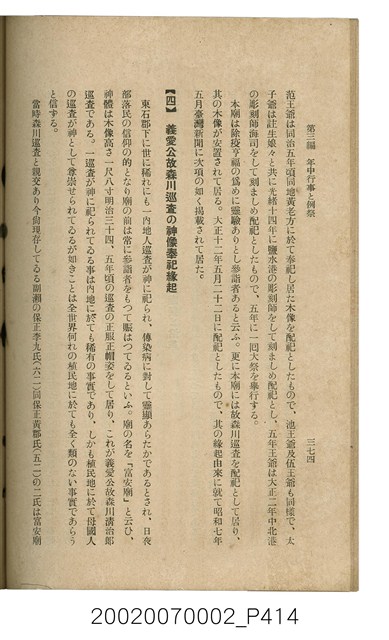 第三編　年中行事と例祭
三七四
范王爺は同治五年頃同地黃老方に於て奉祀し居た木像を配祀としたもので、池王爺及伍王爺も同樣で、太
子爺は註生娘々と共に光緒十四年に鹽水港の彫刻師をして刻ましめ配祀とし、五年王爺は大正二年中北港
の彫刻師海司をして刻ましめ配祀としたもので、五年に一回大祭を舉行する。
本廟は除疫孕福の爲めに靈驗ありとし參詣者あると云ふ。更に本廟には故森川巡査を配祀として居り、
其の木像が安置されて居る。大正十二年五月二十二日に配祀としたもので、其の緣起由來に就て昭和七年
五月臺灣新聞に次項の如く揭載されて居た。
【四】　義愛公故森川巡査の神像奉祀緣起
東石郡下に世に稀れにも一內地人巡査が神に祀られ、傳染病に對して靈顯あらたかであるとされ、日夜
部落民の信仰の的となり廟の前は常に參詣者をもつて賑はつてゐるといふ。廟の名を「富安廟」と云ひ、
神體は木像高さ一尺八寸明治三十四、五年頃の巡査の正服正帽姿をして居り、これが義愛公故森川淸治郎
巡査である。一巡査が神に祀られてゐる事は內地に於ても稀有の事實であり、しかも植民地に於て母國人
の巡査が神として尊崇せられてゐるが如きことは全世界何れの植民地に於ても全く類のない事實であらう
と信ずる。
當時森川巡査と親交あり今尙現存してゐる副瀨の保正李九氏（六二）同保正黃鄒氏（五二）の二氏は富安廟
20020070002_P414